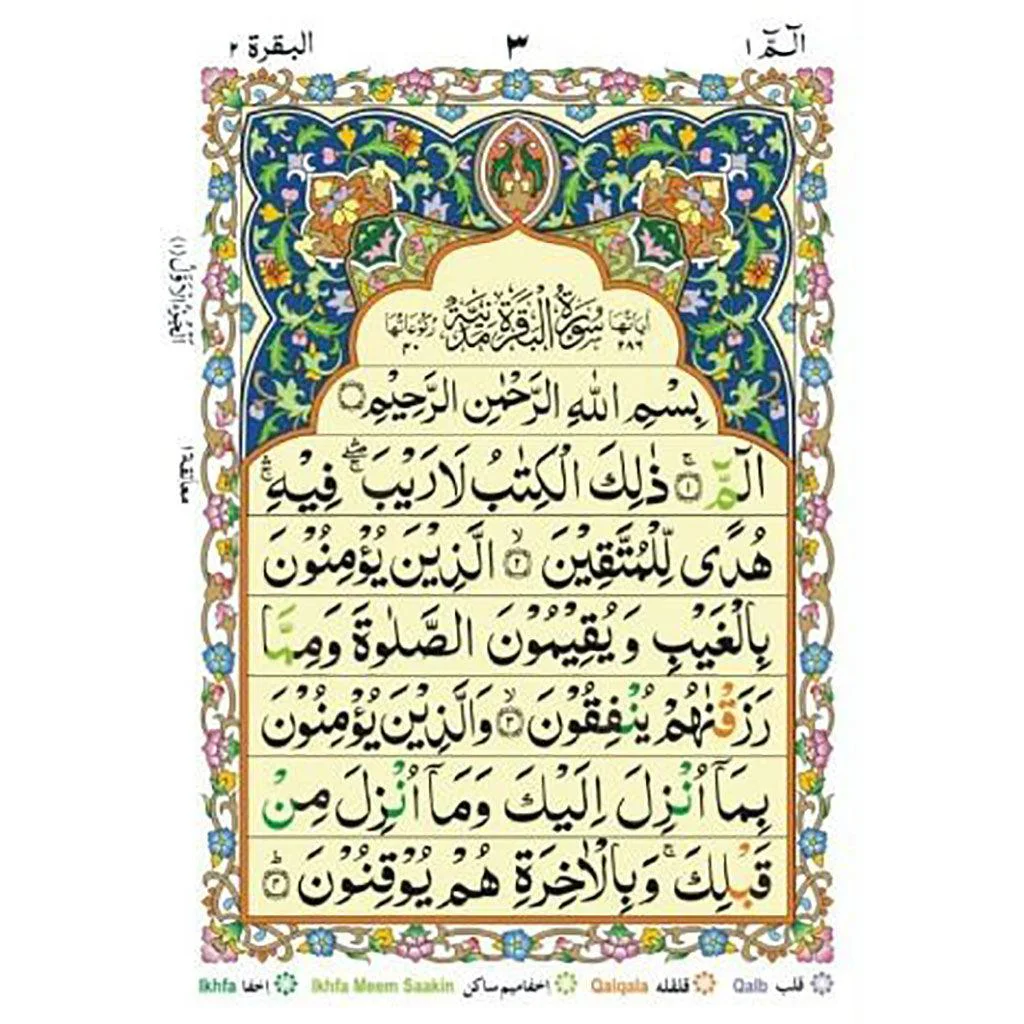 الٓمّٓ ١
٣
البقرة ٢
اَلْجُزْءُ الْاَوَّلُ (١)
اٰيَاتُهَا ٢٨٦
سُوْرَةُ الْبَقَرَةِ مَدَنِيَّةٌ
رُكُوْعَاتُهَا ٤٠
بِسْمِ اللّٰهِ الرَّحْمٰنِ الرَّحِيْمِ
الٓمّٓ ۚ ١ ذٰلِكَ الْكِتٰبُ لَا رَيْبَ ۛۖ فِيْهِ ۛۚ
معانقة ١
هُدًى لِّلْمُتَّقِيْنَ ۙ ٢ الَّذِيْنَ يُؤْمِنُوْنَ
بِالْغَيْبِ وَيُقِيْمُوْنَ الصَّلٰوةَ وَمِمَّا
رَزَقْنٰهُمْ يُنْفِقُوْنَ ۙ ٣ وَالَّذِيْنَ يُؤْمِنُوْنَ
بِمَآ اُنْزِلَ اِلَيْكَ وَمَآ اُنْزِلَ مِنْ
قَبْلِكَ ۚ وَبِالْاٰخِرَةِ هُمْ يُوْقِنُوْنَ ؕ ٤
Ikhfa اخفا Ikhfa Meem Saakin اخفا میم ساکن Qalqala قلقله Qalb قلب